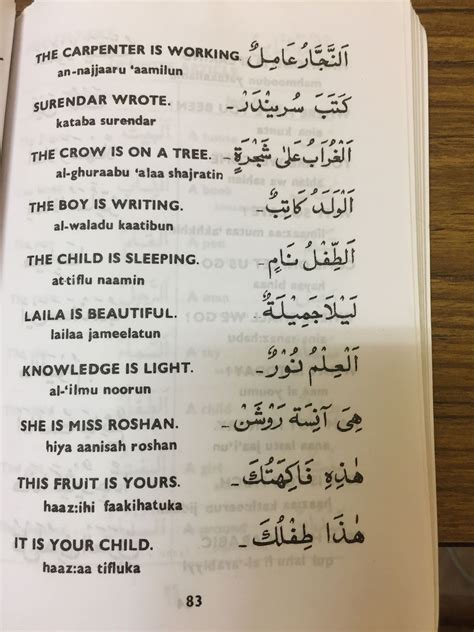 THE CARPENTER IS WORKING اَلنَّجَّارُ عَامِلٌ
an-najjaaru ‘aamilun
SURENDAR WROTE. كَتَبَ سُرِيندَرْ -
kataba surendar
THE CROW IS ON A TREE. اَلْغُرَابُ عَلىٰ شَجْرَةٍ -
al-ghuraabu ‘alaa shajratin
THE BOY IS WRITING. اَلْوَلَدُ كَاتِبٌ -
al-waladu kaatibun
THE CHILD IS SLEEPING. اَلطِّفْلُ نَامٍ -
at-tiflu naamin
LAILA IS BEAUTIFUL. لَيْلَا جَمِيلَةٌ -
lailaa jameelatun
KNOWLEDGE IS LIGHT. اَلْعِلْمُ نُوْرٌ -
al-‘ilmu noorun
SHE IS MISS ROSHAN. هِىَ آنِسَة رَوْشَنْ -
hiya aanisah roshan
THIS FRUiT IS YOURS. هٰذِهِ فَاكِهَتُكَ -
haaz:ihi faakihatuka
IT IS YOUR CHILD. هٰذَا طِفْلُكَ -
haaz:aa tifluka
83